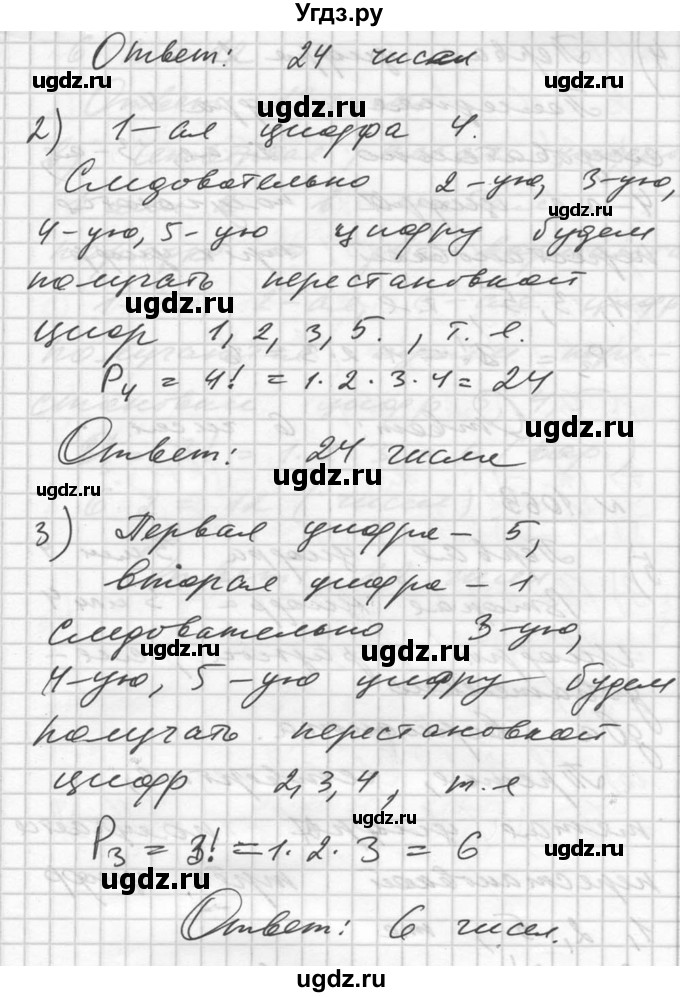 Угдз.ру
Ответ: 24 числа
ugdz.ru ugdz.ru
ugdz.ru
2) 1-ая цифра 4.
ugdz.ru
Следовательно 2-ую, 3-ую,
ugdz.ru
4-ую, 5-ую цифру будем
получать перестановкой
ugdz.ru
цифр 1, 2, 3, 5. , т. е.
P₄ = 4! = 1·2·3·4 = 24
ugdz.ru
Ответ: 24 числа
ugdz.ru
ugdz.ru
3) Первая цифра - 5,
вторая цифра - 1
Следовательно 3-ую,
ugdz.ru ugdz.ru
4-ую, 5-ую цифру будем
получать перестановкой
цифр 2, 3, 4, т. е
ugdz.ru
P₃ = 3! = 1·2·3 = 6
ugdz.ru
ugdz.ru
Ответ: 6 чисел.
ugdz.ru